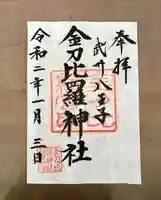 奉拝
武州八王子
金刀比羅神社
令和二年一月三日